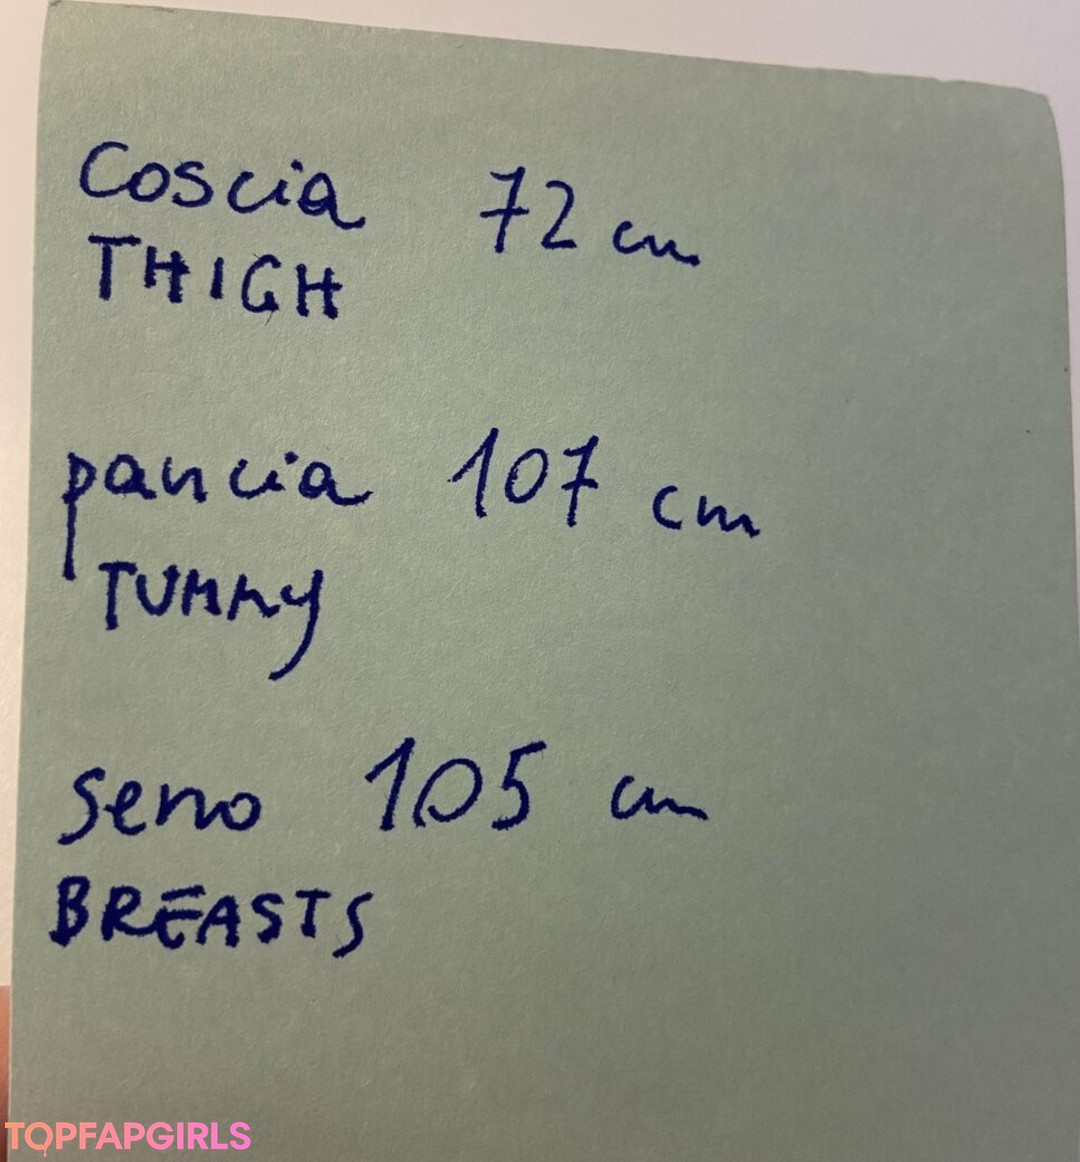 Coscia 72 cm
THIGH
pancia 107 cm
TUMMY
seno 105 cm
BREASTS
TOPFAPGIRLS